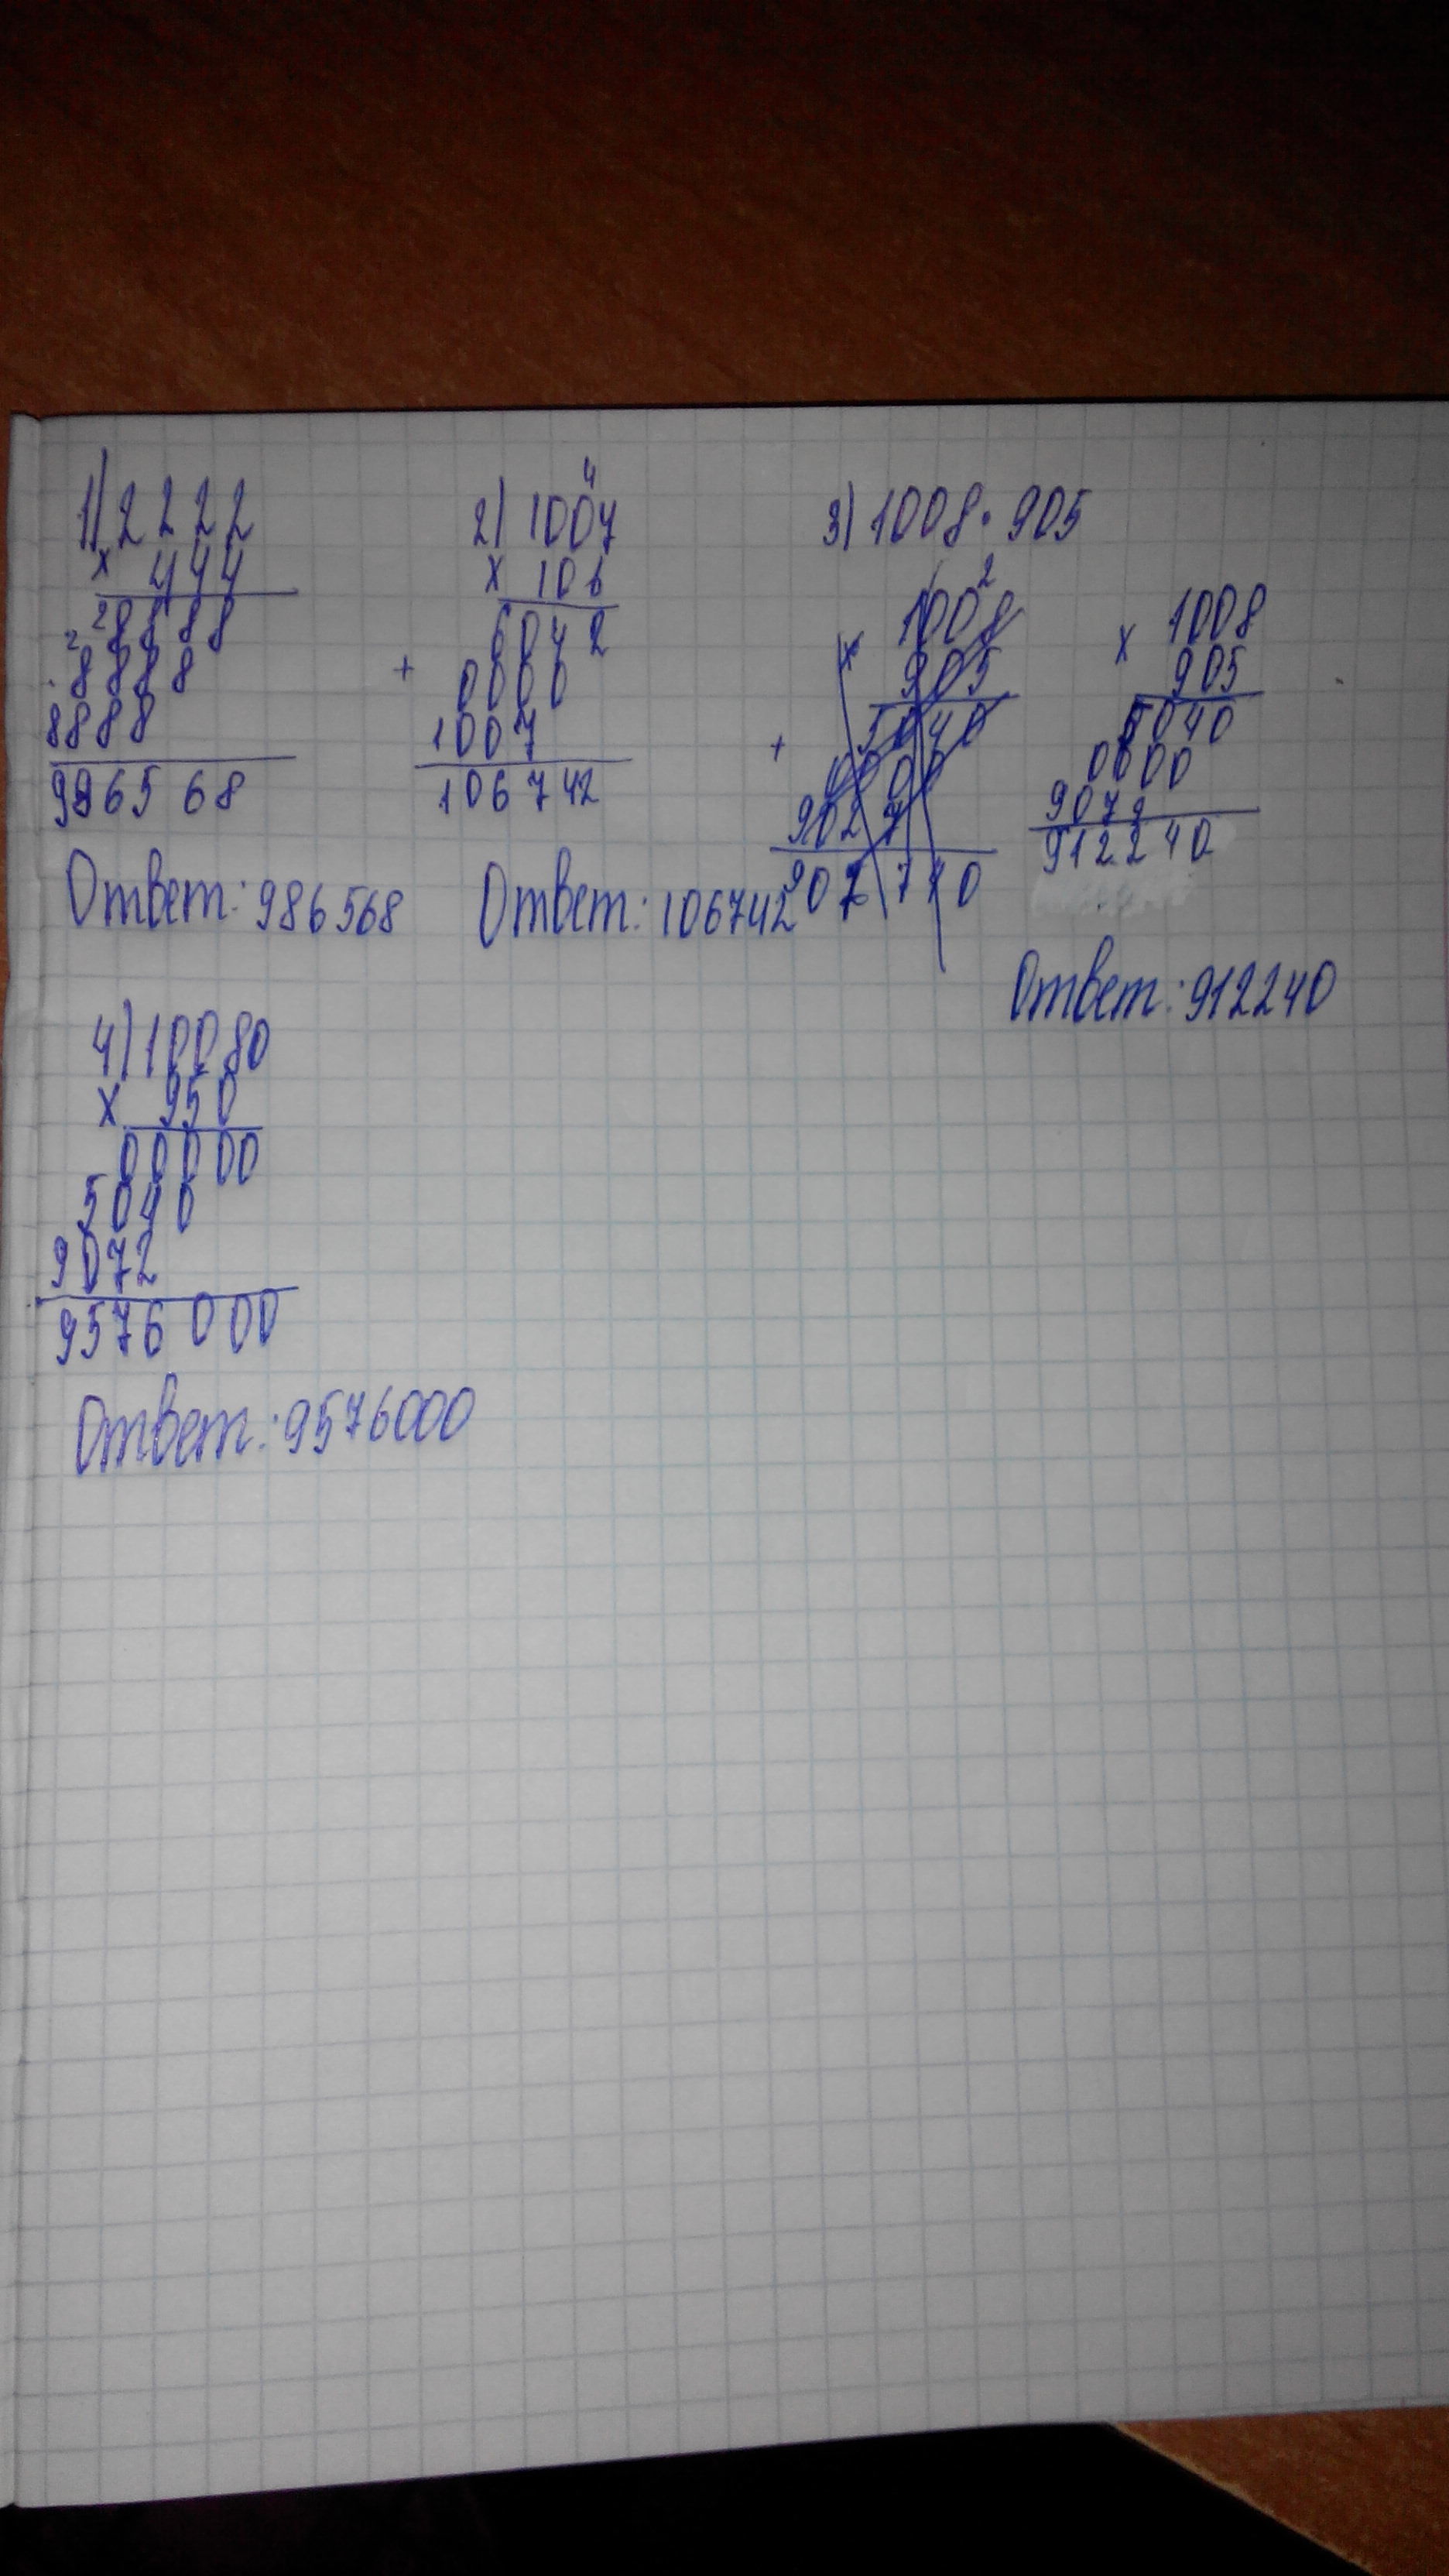 1) 2222
× 444
8888
8888
8888
986568
Ответ: 986568
2) 1007
× 106
6042
+ 0000
1007
106742
Ответ: 106742
3) 1008 · 905
1008
× 905
5040
0000
9072
912240
Ответ: 912240
4) 10080
× 950
00000
5040
9072
9576000
Ответ: 9576000